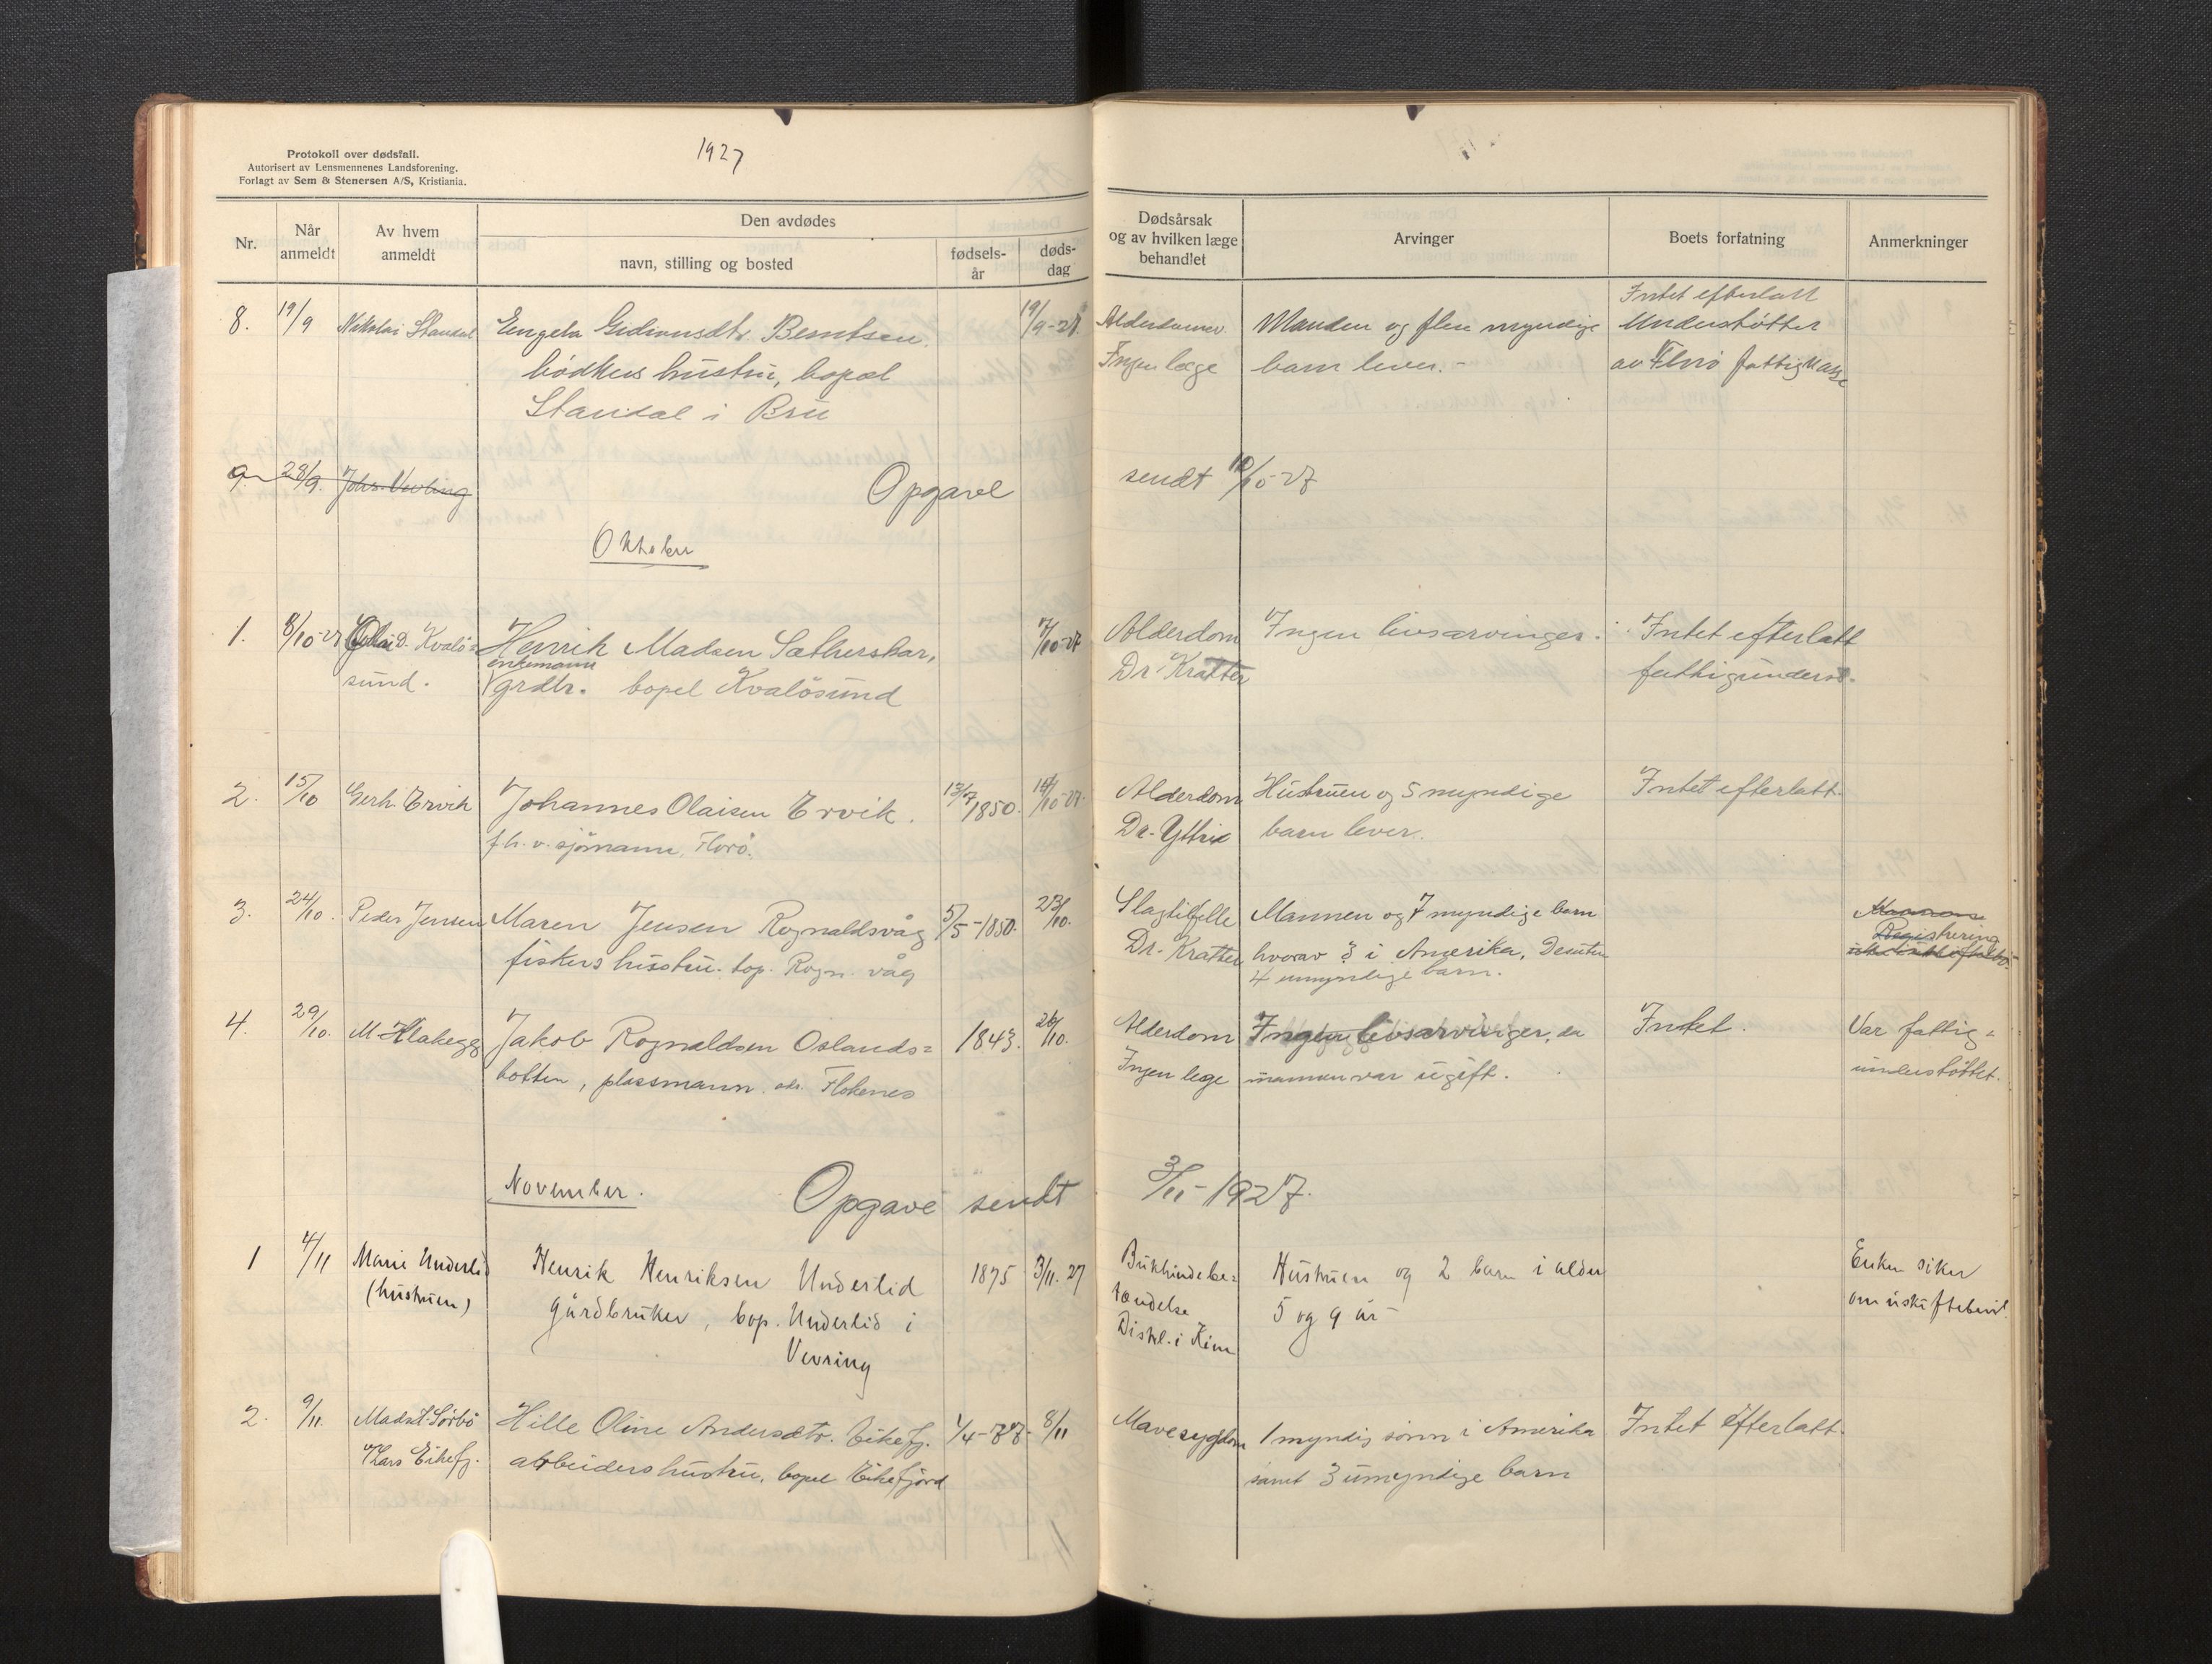 1927
Protokoll over dødsfall.
Autorisert av Lensmennenes Landsforening.
Forlagt av Sem & Stenersen A/S, Kristiania.
Nr.
Når anmeldt
Av hvem anmeldt
Den avdødes
navn, stilling og bosted
fødsels-
år
døds-
dag
Dødsårsak
og av hvilken læge
behandlet
Arvinger
Boets forfatning
Anmerkninger
8. 19/9 Nikolai Standal Engela Gidionsdtr. Berntsen. 19/9-27. Alderdomsv. Manden og flere myndige Intet efterlatt
Understøttet
bødkers hustru, bopæl Ingen læge barn lever.- av Florø fattigkasse
Standal i Bru
9. 28/9. Johs. Vevling Opgave sendt 10/10-27
Oktober
1. 8/10-27 D. Kvalö= Henrik Madsen Sætherskar, 7/10-27 Alderdom Ingen livsarvinger. Intet efterlatt
sund. enkemann
grdbr. bopel Kvalösund Dr. Kratter fattigunderst.
2. 15/10 Gerh. Ervik Johannes Olaisen Ervik. 13/7 1850. 14/10-27. Alderdom Hustruen og 5 myndige Intet efterlatt.
f.h.v. sjömann, Florö. Dr. Yttri barn lever.
3. 24/10. Peder Jensen Maren Jensen Rognaldsvåg 5/5-1850. 23/10. Slagtilfelle Mannen og 7 myndige barn
Registrering
fiskers hustru. bop. Rogn. våg Dr. Kratter hvorav 3 i Amerika. Desuten
4 umyndige barn.
4. 29/10. M. Klakegg Jakob Rognaldsen Oslands= 1843. 26/10. Alderdom Ingen livsarvinger, da Intet. Var fattig=
botten, plassmann. adr. Flokenes Ingen lege mannen var ugift. understöttet.
November. Opgave sendt 3/11-1927.
1 4/11 Marie Underlid Henrik Henriksen Underlid 1875 3/11. 27 Bukhindebe= Hustruen og 2 barn i alder Enken söker
(hustruen) gårdbruker, bop. Underlid i tændelse 5 og 9 år om uskiftebevil.
Vevring Distrl. i Kinn
2. 9/11. Mads T. Sørbö Hille Oline Andersdtr. Eikefj. 1/4-77- 8/11 Mavesygdom 1 myndig sönn i Amerika Intet efterlatt.
Lars Eikefj. arbeiders hustru. bopel Eikefjord samt 3 umyndige barn